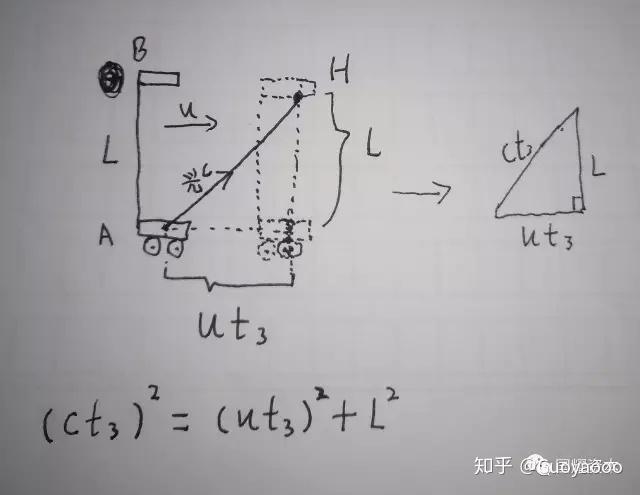 B
H
u
L
光 c
L
A
ut₃
ct₃
L
ut₃
(ct₃)² = (ut₃)² + L²
知乎 @Guoyaooo